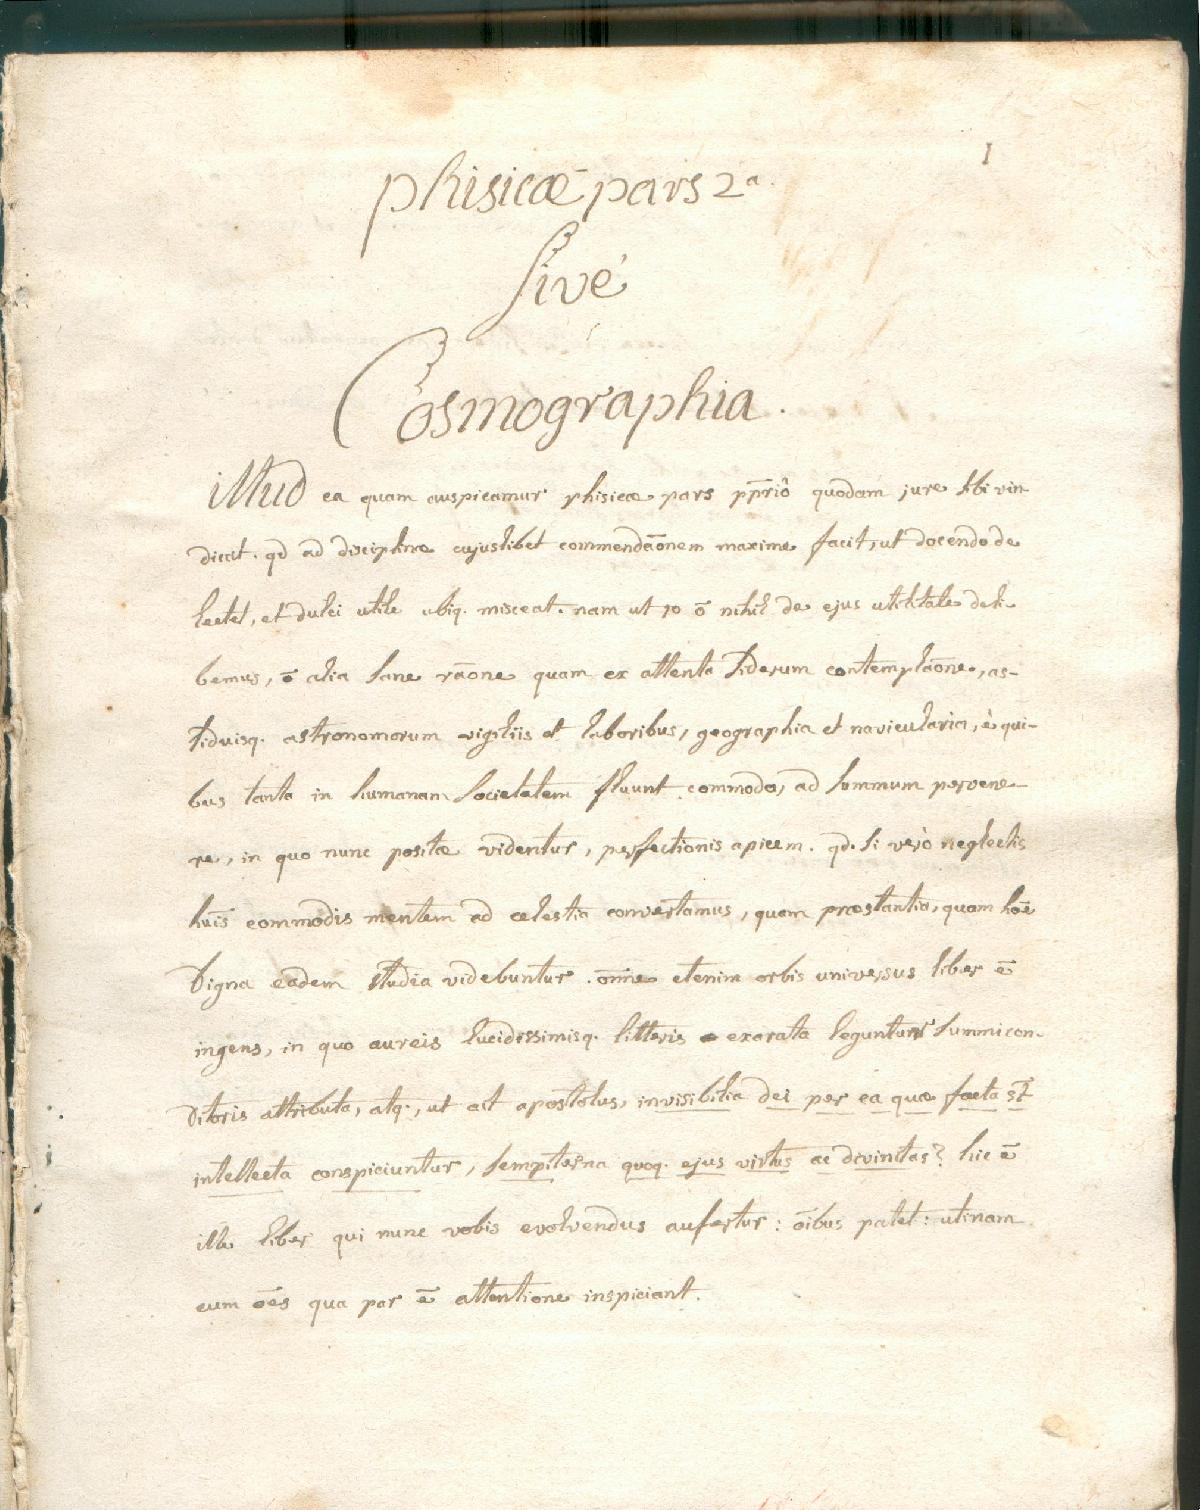 1
phisicæ pars 2ª.
sivè
Cosmographia.
illud ea quam auspicamur phisicæ pars pp̄riô quodam jure sibi vin-
dicat. qd ad disciplinæ cujuslibet commendaōnem maxime facit, ut docendo de
lectet, et dulci utile ubiq. misceat. nam ut ō nihil de ejus utilitate deli
bemus, ē alia sane rāone quam ex attenta siderum contemplaōne, as-
siduisq. astronomorum vigiliis et laboribus, geographia et navicularia, è qui-
bus tanta in humanam societatem fluunt commoda, ad summum pervene-
re, in quo nunc positæ videntur, perfectionis apicem. qd. si verò neglectis
hūis commodis mentem ad celestia convertamus, quam præstantia, quam hōe
digna eadem studia videbuntur. ōnīne etenim orbis universus liber ē
ingens, in quo aureis lucidissimisq. litteris exarata leguntur summi con-
ditoris attributa, atq., ut ait apostolus, invisibilia dei per ea quæ facta st̄
intellecta conspiciuntur, sempiterna quoq. ejus virtus ac divinitas? hic ē
ille liber qui nunc vobis evolvendus aufertur: ōibus patet: utinam
eum ōēs qua par ē attentione inspiciant.